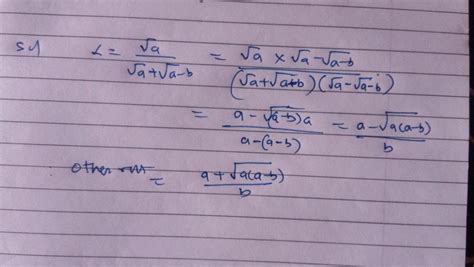 Sol α = √a / (√a + √a-b) = √a × √a - √a-b / (√a + √a-b)(√a - √a-b)
= a - √(a-b)a / a-(a-b) = a - √a(a-b) / b
other = a + √a(a-b) / b